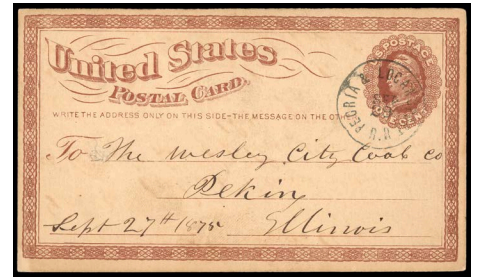 United States
POSTAL CARD.
WRITE THE ADDRESS ONLY ON THIS SIDE-THE MESSAGE ON THE OTHER
U.S. POSTAGE
ONE CENT
PEORIA &
To The Wesley City Coal Co
Pekin
Sept 27th 1875 Illinois